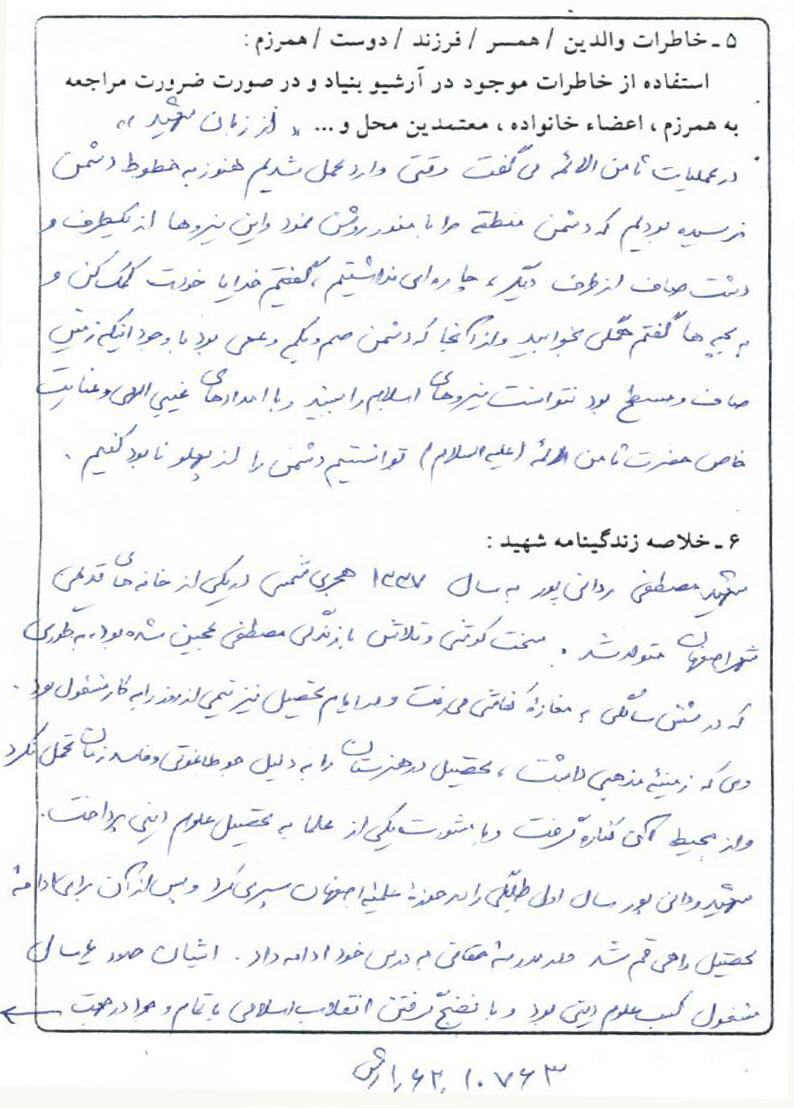 ۵ ـ خاطرات والدین / همسر / فرزند / دوست / همرزم :
استفاده از خاطرات موجود در آرشیو بنیاد و در صورت ضرورت مراجعه
به همرزم ، اعضاء خانواده ، معتمدین محل و ... « از زبان شهید »
در عملیات ثامن الائمه می گفت وقتی وارد عمل شدیم هنوز به خطوط دشمن
نرسیده بودیم که دشمن منطقه را با منور روشن نمود و این نیروها از یکطرف و
دشت صاف از طرف دیگر ، چاره ای نداشتیم ، گفتم خدایا خودت کمک کن و
به بچه ها گفتم همگی بخوابید و از آنجا که دشمن صم و بکم و عمی بود با وجود اینکه زمین
صاف و مسطح بود نتوانست نیروهای اسلام را ببیند و با امدادهای غیبی الهی و عنایت
خاص حضرت ثامن الائمه (علیه السلام) توانستیم دشمن را از پهلو نابود کنیم .
۶ ـ خلاصه زندگینامه شهید :
شهید مصطفی ردانی پور به سال ۱۳۳۷ هجری شمسی در یکی از خانه های قدیمی
شهر اصفهان متولد شد . سخت کوشی و تلاش با زندگی مصطفی عجین شده بود، به طوری
که در شش سالگی به مغازه کفاشی می رفت و در ایام تحصیل نیز نیمی از روز را به کار مشغول بود .
وی که زمینهٔ مذهبی داشت ، تحصیل در هنرستان را به دلیل جو طاغوتی و فاسد زمان تحمل نکرد
و از محیط آن کناره گرفت و با مشورت یکی از علما به تحصیل علوم دینی پرداخت .
شهید ردانی پور سال اول طلبگی را در حوزهٔ علمیهٔ اصفهان سپری کرد و پس از آن برای ادامهٔ
تحصیل راهی قم شد و در مدرسهٔ حقانی به درس خود ادامه داد . ایشان حدود ۶ سال
مشغول کسب علوم دینی بود و با نضج گرفتن انقلاب اسلامی با تمام وجود در جهت ←
۶۲٫۱۰۷۶۳